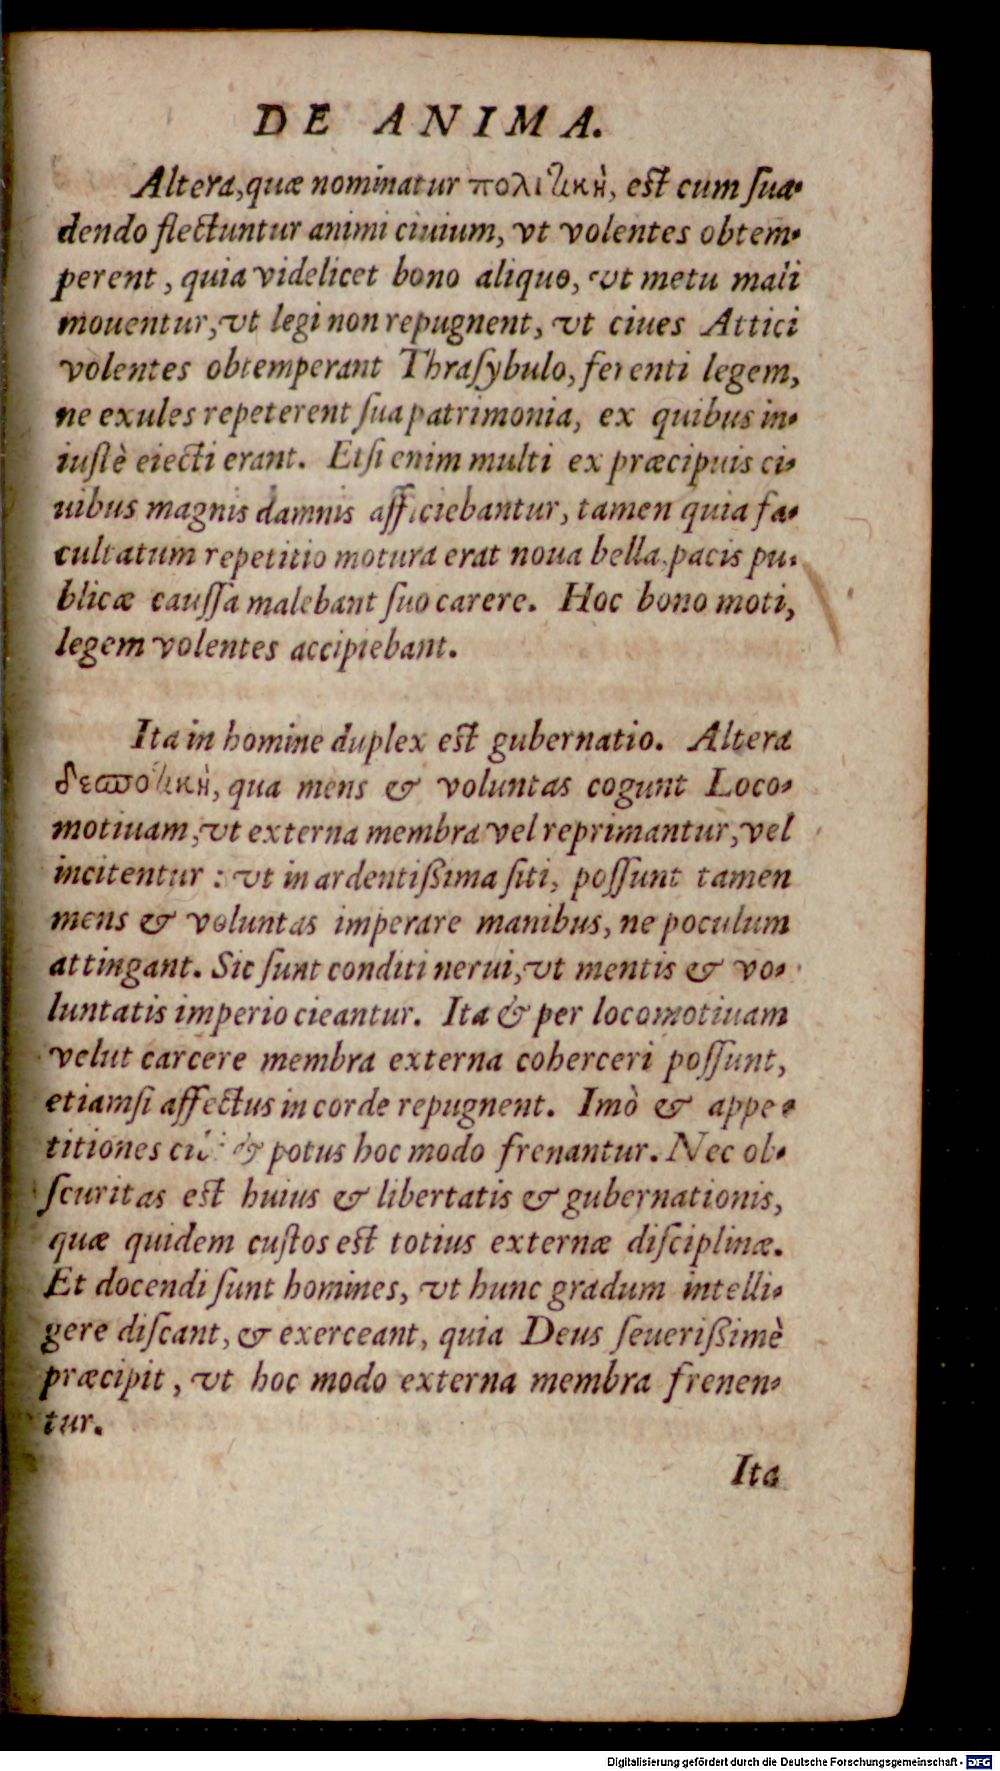 DE ANIMA.
Altera, quæ nominatur πολιτικὴ, est cum ſua-
dendo flectuntur animi ciuium, vt volentes obtem-
perent, quia videlicet bono aliquo, vt metu mali
mouentur, vt legi non repugnent, vt ciues Attici
volentes obtemperant Thraſybulo, ferenti legem,
ne exules repeterent ſua patrimonia, ex quibus in-
iuſtè eiecti erant. Etſi enim multi ex præcipuis ci-
uibus magnis damnis afficiebantur, tamen quia fa-
cultatum repetitio motura erat noua bella, pacis pu-
blicæ cauſſa malebant ſuo carere. Hoc bono moti,
legem volentes accipiebant.
Ita in homine duplex est gubernatio. Altera
δεσποτικὴ, qua mens & voluntas cogunt Loco-
motiuam, vt externa membra vel reprimantur, vel
incitentur: vt in ardentißima ſiti, poſſunt tamen
mens & voluntas imperare manibus, ne poculum
attingant. Sic ſunt conditi nerui, vt mentis & vo-
luntatis imperio cieantur. Ita & per locomotiuam
velut carcere membra externa coherceri poſſunt,
etiamſi affectus in corde repugnent. Imò & appe-
titiones cibi & potus hoc modo frenantur. Nec ob-
ſcuritas est huius & libertatis & gubernationis,
quæ quidem cuſtos est totius externæ diſciplinæ.
Et docendi ſunt homines, vt hunc gradum intelli-
gere diſcant, & exerceant, quia Deus ſeuerißimè
præcipit, vt hoc modo externa membra frenen-
tur.
Ita
Digitalisierung gefördert durch die Deutsche Forschungsgemeinschaft - DFG